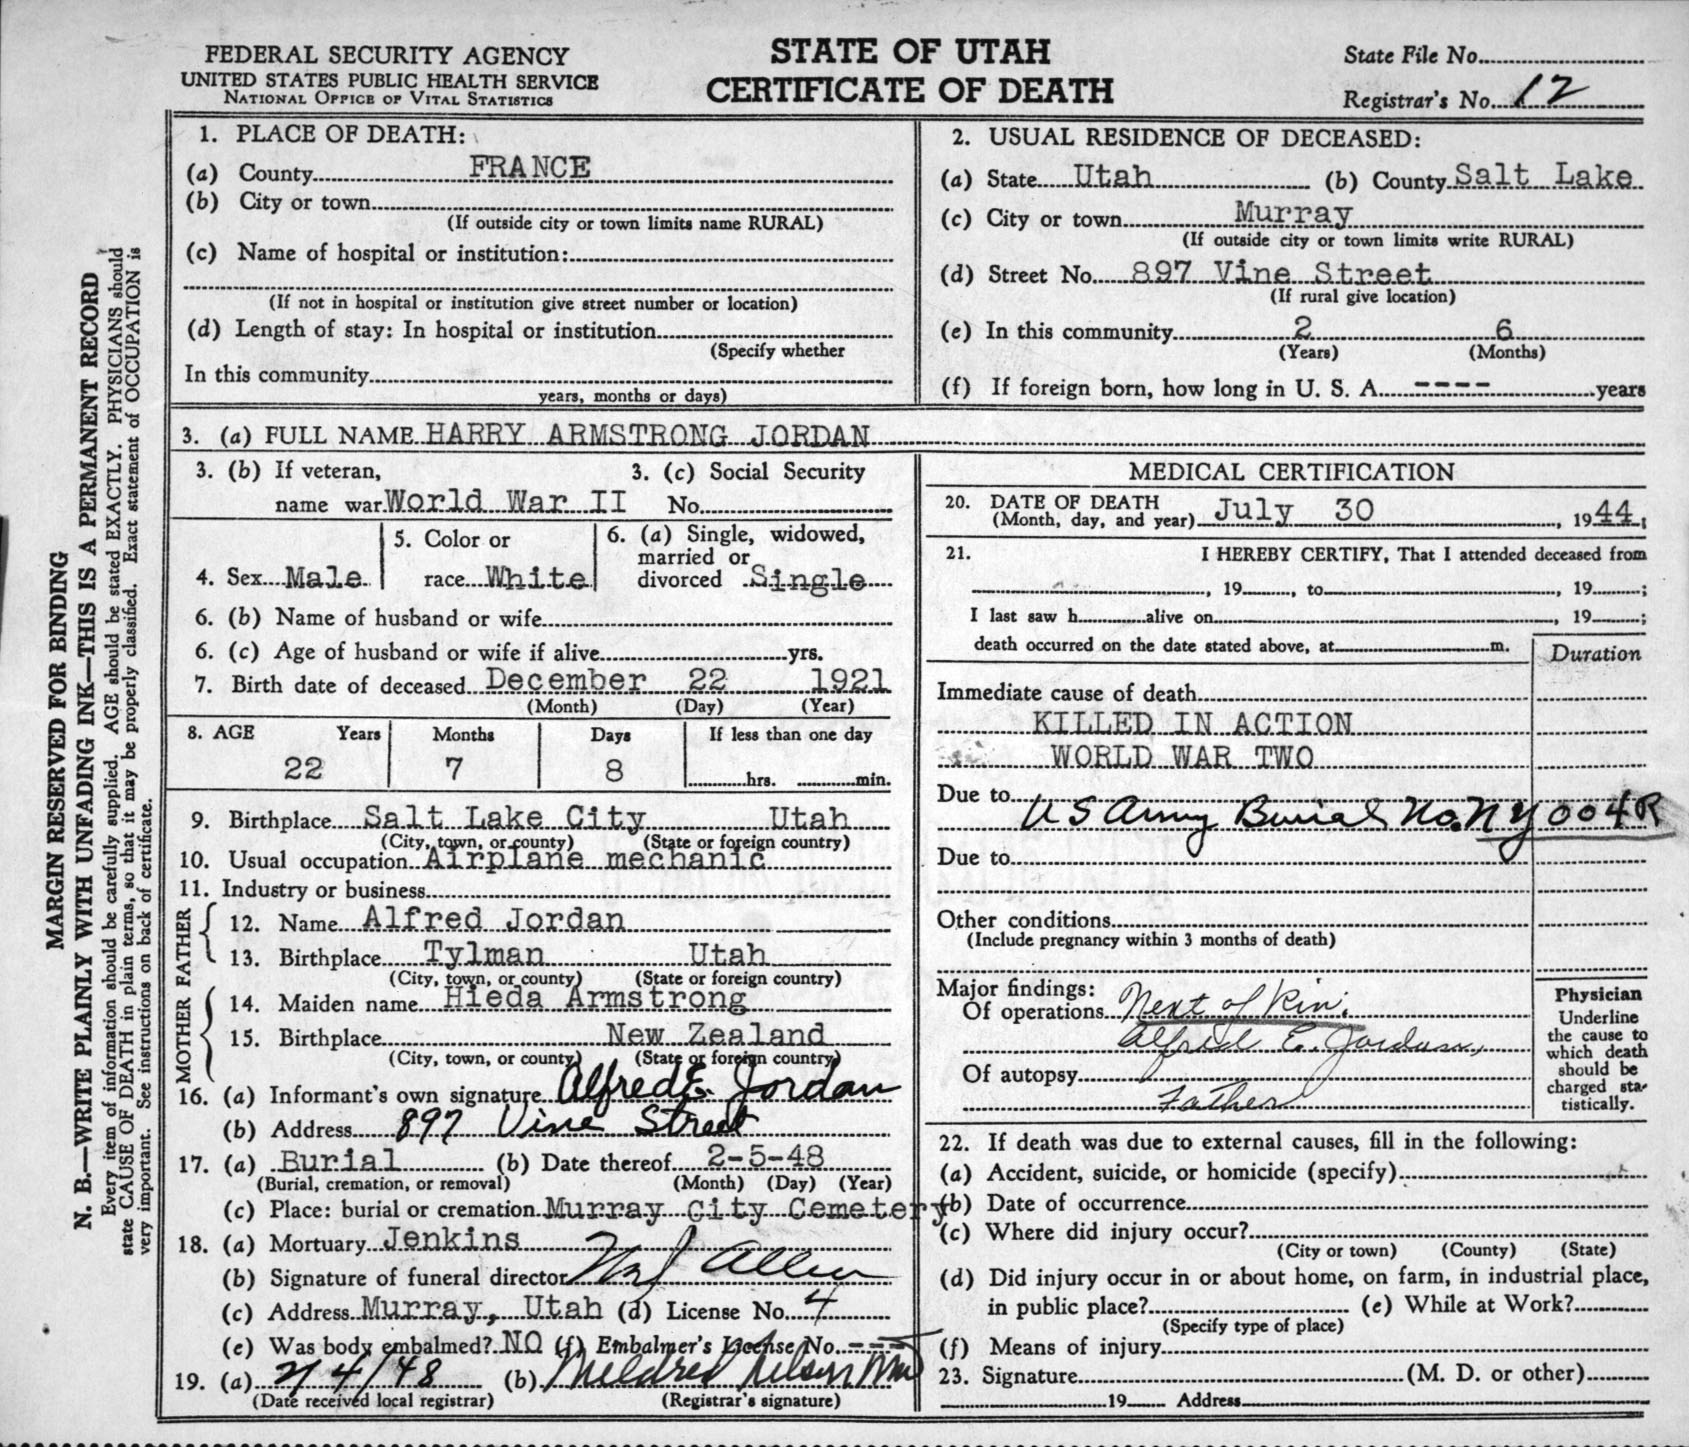 FEDERAL SECURITY AGENCY
UNITED STATES PUBLIC HEALTH SERVICE
NATIONAL OFFICE OF VITAL STATISTICS
STATE OF UTAH
CERTIFICATE OF DEATH
State File No.
Registrar's No. 12
MARGIN RESERVED FOR BINDING
N. B.—WRITE PLAINLY WITH UNFADING INK—THIS IS A PERMANENT RECORD
Every item of information should be carefully supplied. AGE should be stated EXACTLY. PHYSICIANS should
state CAUSE OF DEATH in plain terms, so that it may be properly classified. Exact statement of OCCUPATION is
very important. See instructions on back of certificate.
1. PLACE OF DEATH:
(a) County FRANCE
(b) City or town
(If outside city or town limits name RURAL)
(c) Name of hospital or institution:
(If not in hospital or institution give street number or location)
(d) Length of stay: In hospital or institution
(Specify whether
In this community
years, months or days)
2. USUAL RESIDENCE OF DECEASED:
(a) State Utah (b) County Salt Lake
(c) City or town Murray
(If outside city or town limits write RURAL)
(d) Street No. 897 Vine Street
(If rural give location)
(e) In this community 2 6
(Years) (Months)
(f) If foreign born, how long in U. S. A. ---- years
3. (a) FULL NAME HARRY ARMSTRONG JORDAN
3. (b) If veteran, 3. (c) Social Security
name war World War II No.
4. Sex Male
5. Color or
race White
6. (a) Single, widowed,
married or
divorced Single
6. (b) Name of husband or wife
6. (c) Age of husband or wife if alive yrs.
7. Birth date of deceased December 22 1921
(Month) (Day) (Year)
8. AGE Years Months Days If less than one day
22 7 8 hrs. min.
9. Birthplace Salt Lake City Utah
(City, town, or county) (State or foreign country)
10. Usual occupation Airplane mechanic
11. Industry or business
FATHER
12. Name Alfred Jordan
13. Birthplace Tylman Utah
(City, town, or county) (State or foreign country)
MOTHER
14. Maiden name Hieda Armstrong
15. Birthplace New Zealand
(City, town, or county) (State or foreign country)
16. (a) Informant's own signature Alfred E. Jordan
(b) Address 897 Vine Street
17. (a) Burial (b) Date thereof 2-5-48
(Burial, cremation, or removal) (Month) (Day) (Year)
(c) Place: burial or cremation Murray City Cemetery
18. (a) Mortuary Jenkins
(b) Signature of funeral director Allen
(c) Address Murray, Utah (d) License No. 4
(e) Was body embalmed? NO (f) Embalmer's License No. ---
19. (a) 2/4/48 (b) Mildred Nelson
(Date received local registrar) (Registrar's signature)
MEDICAL CERTIFICATION
20. DATE OF DEATH
(Month, day, and year) July 30, 1944;
21. I HEREBY CERTIFY, That I attended deceased from
, 19 , to , 19 ;
I last saw h alive on , 19 ;
death occurred on the date stated above, at m.
Duration
Immediate cause of death
KILLED IN ACTION
WORLD WAR TWO
Due to
US Army Burial No. NY 004R
Due to
Other conditions
(Include pregnancy within 3 months of death)
Major findings:
Of operations Next of Kin:
Alfred E. Jordan,
Of autopsy
Father
Physician
Underline
the cause to
which death
should be
charged sta-
tistically.
22. If death was due to external causes, fill in the following:
(a) Accident, suicide, or homicide (specify)
(b) Date of occurrence
(c) Where did injury occur?
(City or town) (County) (State)
(d) Did injury occur in or about home, on farm, in industrial place,
in public place? (e) While at Work?
(Specify type of place)
(f) Means of injury
23. Signature (M. D. or other)
19 Address